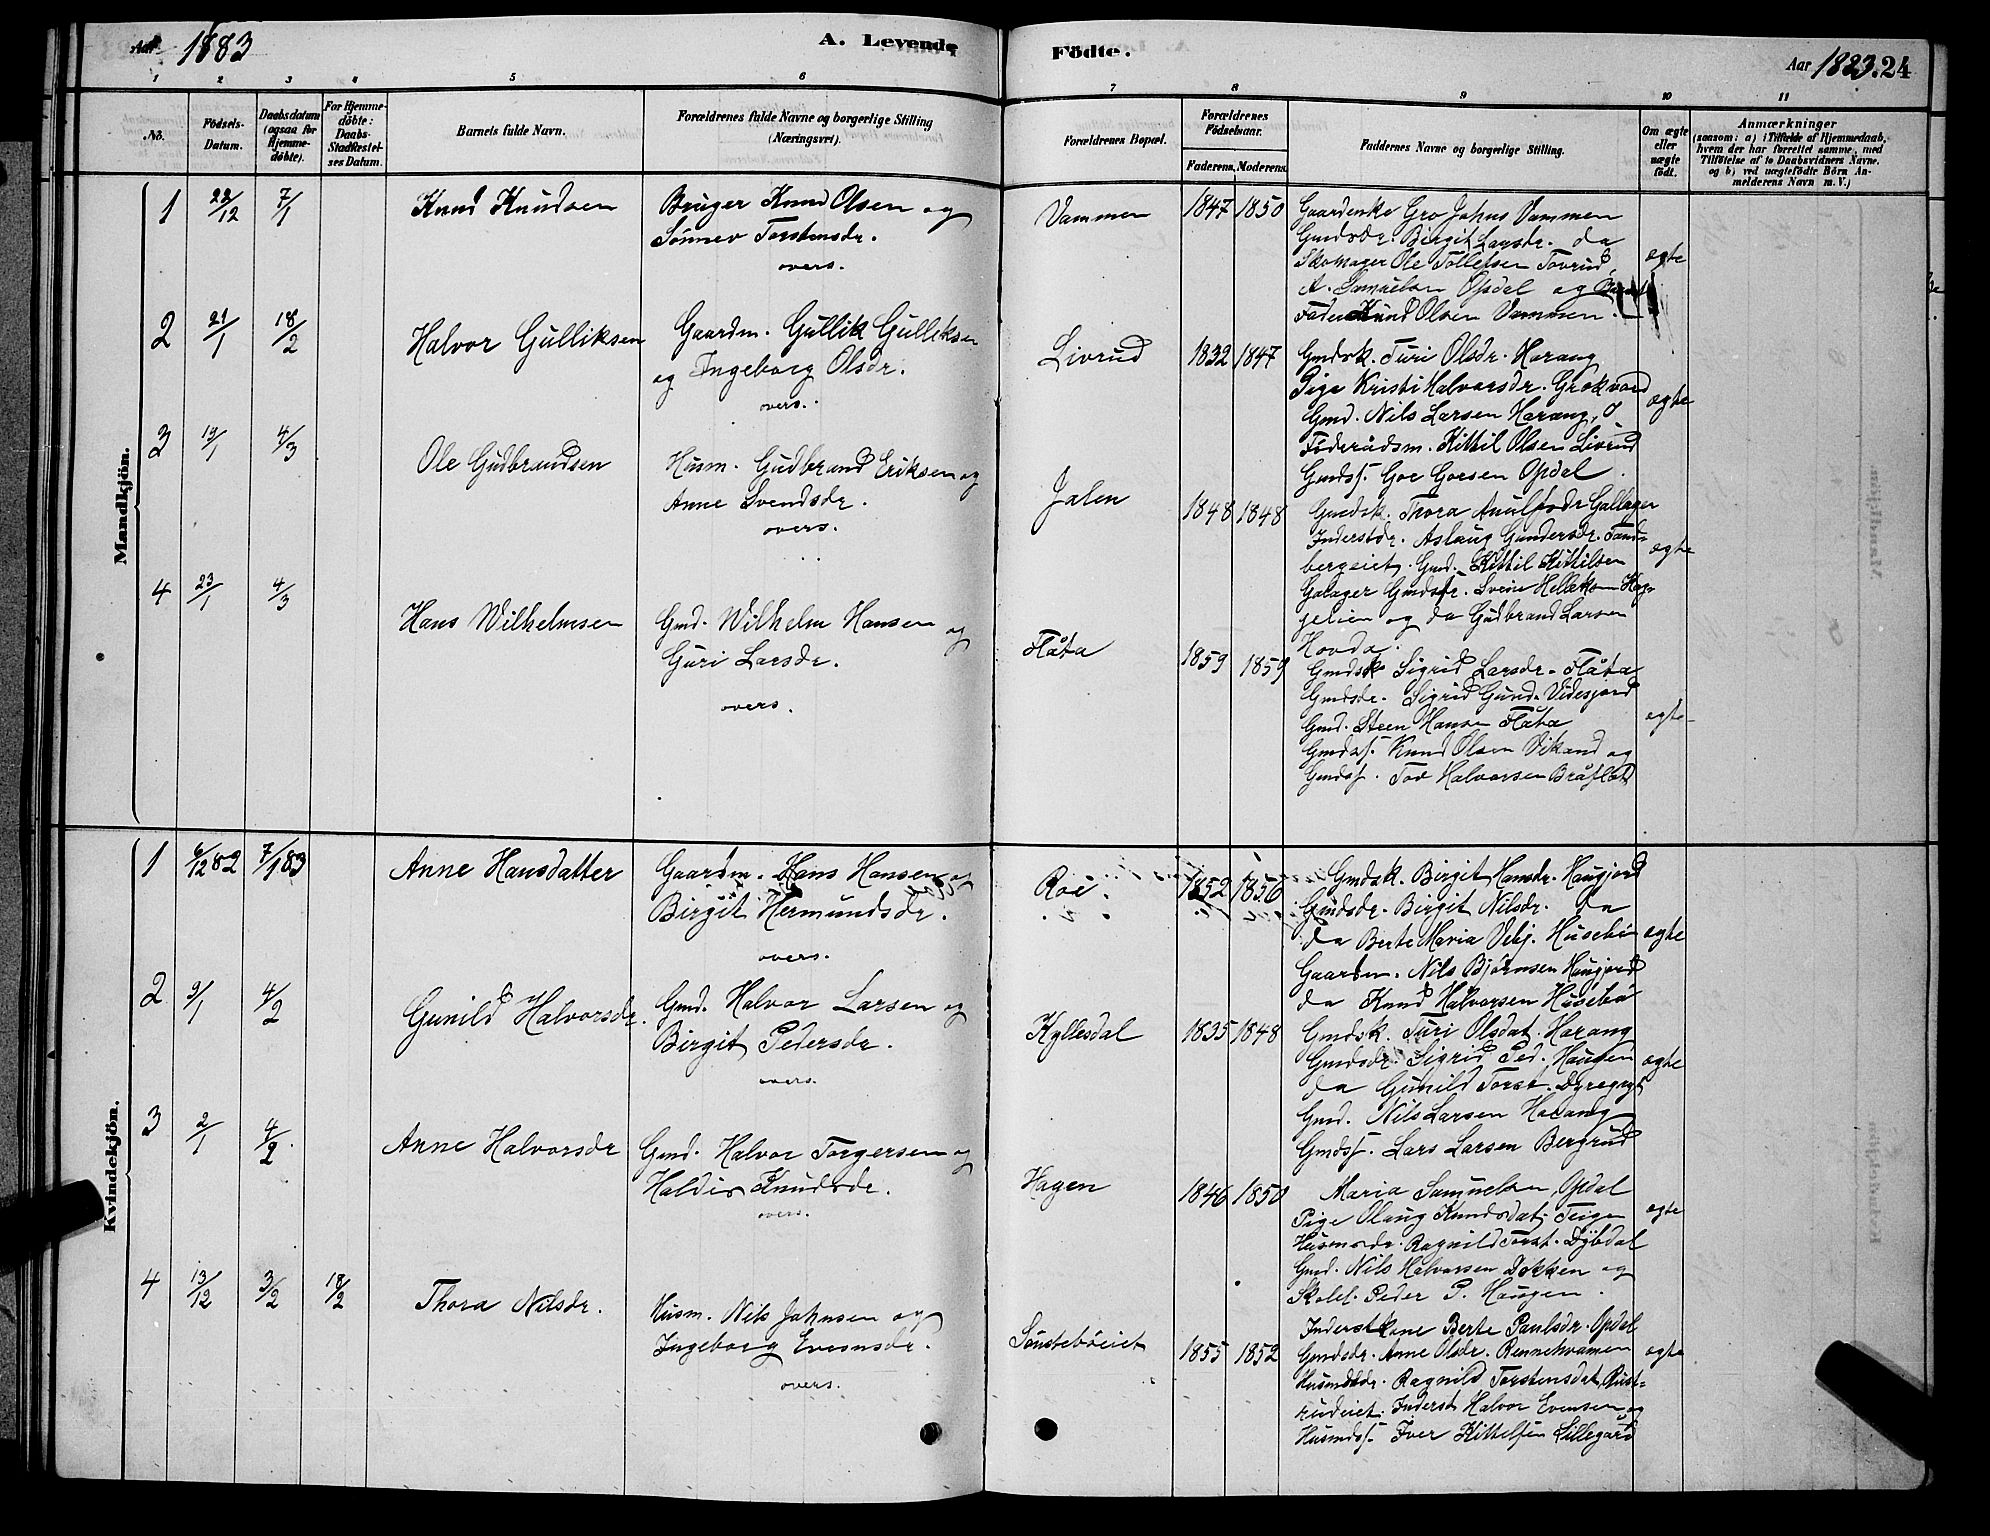 Aar 1883
A. Levende Födte.
Aar 1883. 24
1 2 3 4 5 6 7 8 9 10 11
No.
Födsels-Datum.
Daabsdatum (ogsaa for Hjemmedöbte).
For Hjemmedöbte: Daabs-Stadfæstelses Datum.
Barnets fulde Navn.
Forældrenes fulde Navne og borgerlige Stilling (Næringsvei).
Forældrenes Bopæl.
Forældrenes Födselsaar.
Faderens. Moderens.
Faddernes Navne og borgerlige Stilling.
Om ægte eller uægte födt.
Anmærkninger
(saasom: a) i Tilfælde af Hjemmedaab,
hvem der har forrettet samme, med
Tilföielse af to Daabsvidners Navne,
og b) ved uægtefödte Börn An-
melderens Navn m. V.)
Mandkjön.
1 22/12 7/1 Knud Knudsen
Bruger Knud Olsen og
Sönnev Torstensdr.
overs.
Vammen 1847 1850
Gaardenke Gro Johns Vammen
Gmdsdr. Birgit Larsdr. da
Skomager Ole Tollefsen Tovrud
A. Samuelsen Opdal og
Fader Knud Olsen Vammen.
ægte
2 21/1 18/2 Halvor Gulliksen
Gaardm. Gullik Gulliksen
og Ingeborg Olsdr.
overs.
Livrud 1832 1847
Gmdsk. Turi Olsdr. Harang
Pige Kristi Halvorsdr. Grokvord
Gmd. Nils Larsen Harang, o
Föderådsm. Kittil Olsen Livrud
Gmdss. Goe Goesen Opdal.
ægte
3 19/1 4/3 Ole Gudbrandsen
Husm. Gudbrand Eriksen og
Anne Svendsdr.
overs.
Jalen 1848 1848
Gmdsk. Thora Aulfsdr Gallager
Inderstdr. Aslaug Gundersdr. Tands-
bergeiet. Gmd. Kittil Kittilsen
Galager Gmdss. Svein Helleksen Hag-
jelien og da Gudbrand Larsen
Hovda.
ægte
4 23/1 4/3 Hans Wilhelmsen
Gmd. Wilhelm Hansen og
Guri Larsdr.
overs.
Flåta 1859 1859
Gmdsk Sigrid Larsdr. Flåta
Gmdsdr. Sigrid Gund. Videsjord
Gmd. Steen Hansen Flåta
Gmdss. Knud Olsen Vikand og
Gmdss. Tov Halvorsen Bråflåt
ægte
Kvindekjön.
1 6/12 82 7/1 83 Anne Hansdatter
Gaardm. Hans Hansen og
Birgit Hermundsdr.
overs.
Roe 1852 1856
Gmdsk. Birgit Hansdr. Haugjord
Gmdsdr. Birgit Nilsdr. da
da Berte Maria Vebj. Husebö
Gaardm. Nils Björnsen Haugjord
da Knud Halvorsen Husebö
ægte
2 9/1 4/2 Gunild Halvorsdr.
Gmd. Halvor Larsen og
Birgit Pedersdr.
overs.
Kyllesdal 1835 1848
Gmdsk. Turi Olsdat. Harang
Gmdsdr. Sigrid Ped. Haugen
da Gunild Torst. Dyregryt
Gmd. Nils Larsen Harang
Gmdss. Lars Larsen Bergrud
ægte
3 2/1 4/2. Anne Halvorsdr
Gmd. Halvor Torgersen og
Haldis Knudsdr.
overs.
Hagen 1846 1850
Maria Samuelsen, Opdal
Pige Olaug Knudsdat. Teigen
Husmsdr. Ragnild Torst. Dybdal
Gmd. Nils Halvorsen Dokken og
Skoles. Peder P. Haugen.
ægte
4 13/12 3/2 18/2 Thora Nilsdr.
Husm. Nils Johnsen og
Ingeborg Evensdr.
overs.
Sönteböeiet 1855 1852
Inderstkone Berte Paulsdr. Opdal
Gmdsdr. Anne Olsdr. Rennehvamen
Husmdsdr. Ragnild Torstensdat. Rust-
rudeiet. Inderst Halvor Evensen og
Husmdss. Iver Kittelsen Lillegård
ægte